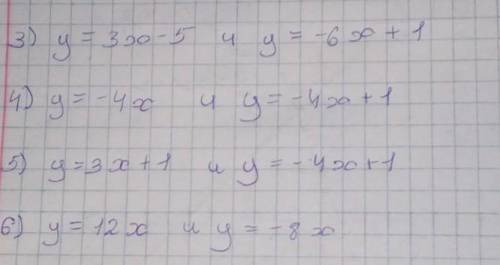 3) y = 3x - 5 и y = -6x + 1
4) y = -4x и y = -4x + 1
5) y = 3x + 1 и y = -4x + 1
6) y = 12x и y = -8x